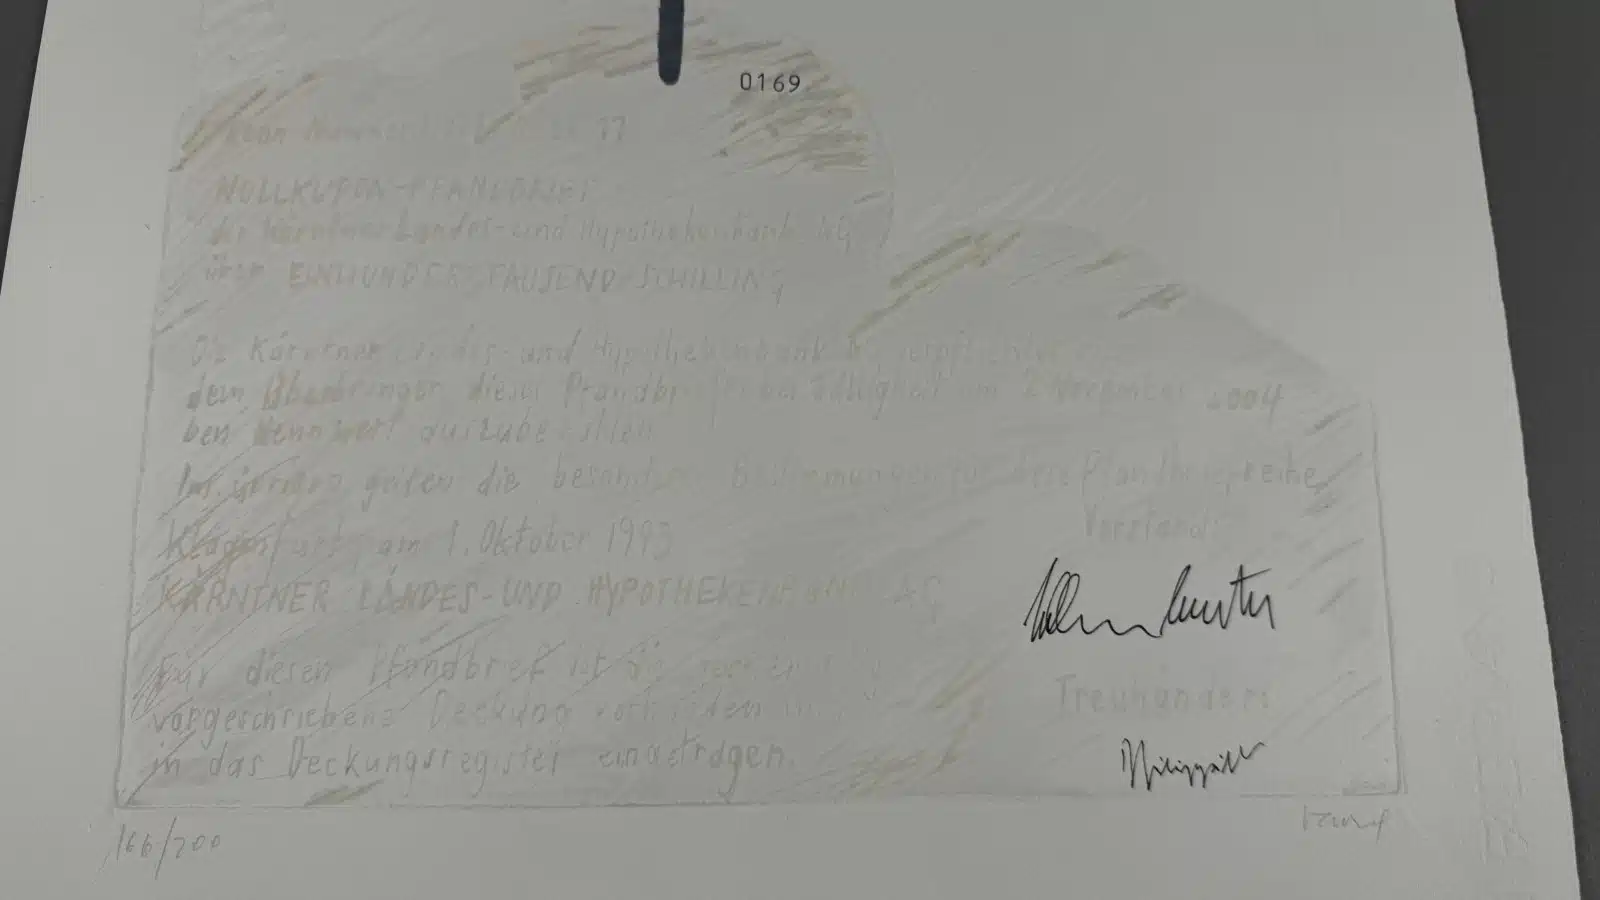 0169
17
NULLKUPON-PFANDBRIEF
der Kärntner Landes- und Hypothekenbank AG
über EINHUNDERTTAUSEND SCHILLING
Die Kärntner Landes- und Hypothekenbank AG verpflichtet
dem Überbringer dieses Pfandbriefes bei Fälligkeit am 2. November 2004
den Nennwert auszubezahlen
Im übrigen gelten die besonderen Bestimmungen für diese Pfandbriefreihe
Klagenfurt, am 1. Oktober 1993
Vorstand:
KÄRNTNER LANDES- UND HYPOTHEKENBANK AG
Für diesen Pfandbrief ist die
vorgeschriebene Deckung vorhanden und
in das Deckungsregister eingetragen.
Treuhänder:
166/200